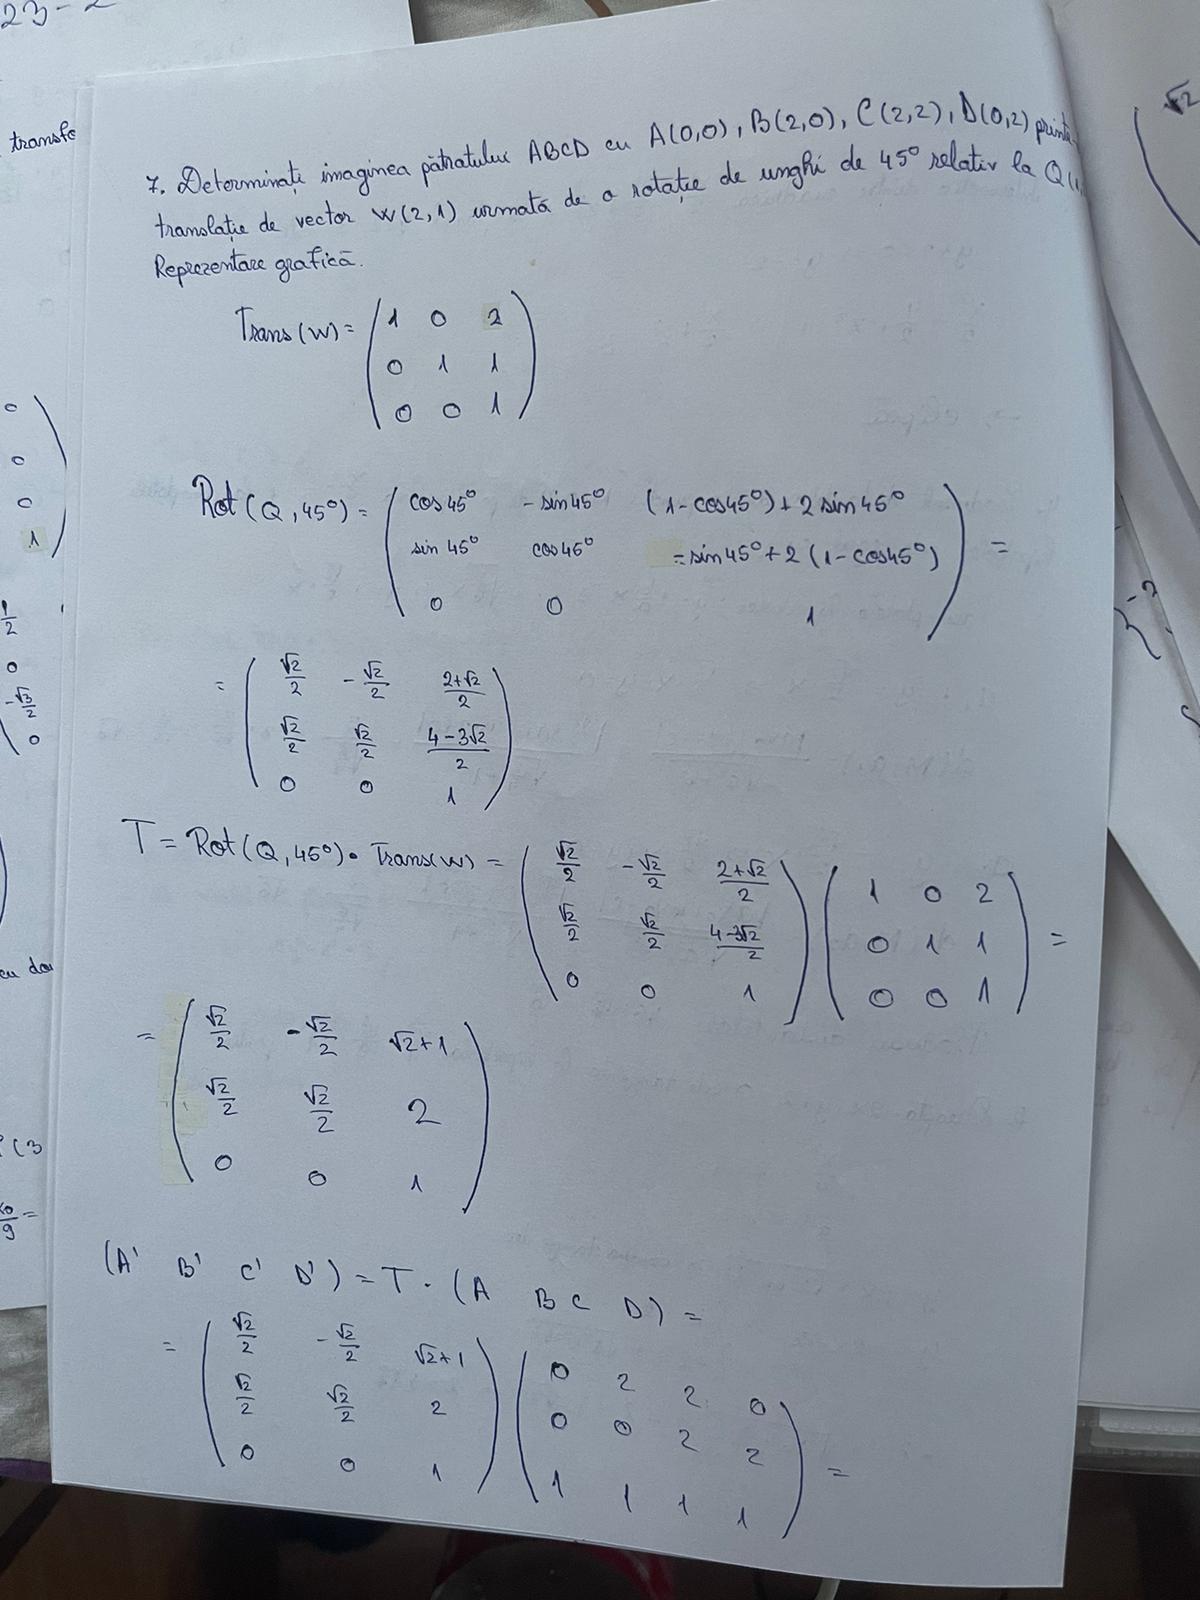 23-2
transfo
7. Determinati imaginea pătratului ABCD cu A(0,0), B(2,0), C(2,2), D(0,2) printr-
translație de vector W(2,1) urmată de o rotație de unghi de 45° relativ la Q(1,
Reprezentare grafică.
Trans(W) = ( 1 0 2
0 1 1
0 0 1 )
Rot(Q, 45°) = ( cos45° - sin45° (1-cos45°)+2sin45°
sin 45° cos45° = sin45°+2(1-cos45°)
0 0 1 ) =
= ( √2/2 - √2/2 2+√2/2
√2/2 √2/2 4-3√2/2
0 0 1 )
T = Rot(Q, 45°) · Trans(W) = ( √2/2 - √2/2 2+√2/2
√2/2 √2/2 4-3√2/2
0 0 1 ) ( 1 0 2
0 1 1
0 0 1 ) =
= ( √2/2 - √2/2 √2+1
√2/2 √2/2 2
0 0 1 )
(A' B' C' D') = T · (A B C D) =
= ( √2/2 - √2/2 √2+1
√2/2 √2/2 2
0 0 1 ) ( 0 2 2 0
0 0 2 2
1 1 1 1 ) =
0
0
0
1
1/2
0
-√3/2
0
(3
√2